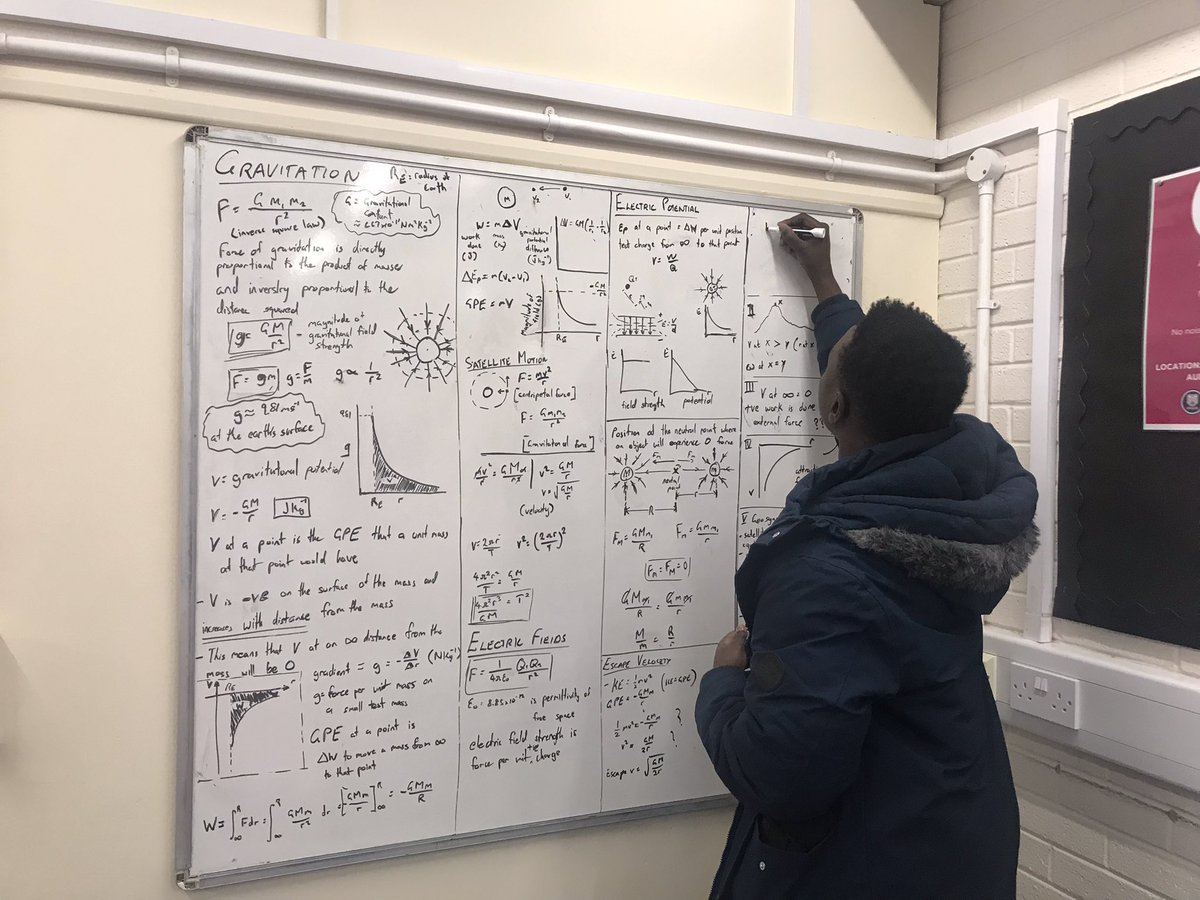 GRAVITATION
RE = radius of Earth
F = G m1 m2 / r²
(inverse square law)
G = Gravitational constant
Force of gravitation is directly
proportional to the product of masses
and inversely proportional to the
distance squared
g = GM / r²
- magnitude of
gravitational field
strength
F = gm
g = F/m
g ∝ 1/r²
g ≈ 9.81 ms⁻²
at the earth's surface
9.81
g
RE
r
V = gravitational potential
V = - GM/r
JKg⁻¹
V at a point is the GPE that a unit mass
at that point would have
- V is -ve on the surface of the mass and
increases with distance from the mass
- This means that V at an ∞ distance from the
mass will be 0
gradient = g = - ΔV/Δr (NKg⁻¹)
g = force per unit mass on
a small test mass
GPE at a point is
ΔW to move a mass from ∞
to that point
V
RE
r
W = ∫∞^R F dr = ∫∞^R GMm/r² dr = [GMm/r]∞^R = - GMm/R
M
W = mΔV
work done (J)
mass (kg)
gravitational potential difference (Jkg⁻¹)
ΔEp = m(V2 - V1)
GPE = mV
Magnitude of field
RE
r
SATELLITE MOTION
F = mv²/r
[centripetal force]
F = G m1 m2 / r²
[Gravitational force]
v² = GM/r
v = √GM/r
(velocity)
v = 2πr/T
v² = (2πr/T)²
4π²r²/T = GM/r
4π²r³/GM = T²
ELECTRIC FIELDS
F = 1/4πε0 Q1Q2/r²
ε0 = 8.85x10⁻¹² is permittivity of
free space
electric field strength is
force per unit +ve charge
ELECTRIC POTENTIAL
Ep at a point = ΔW per unit positive
test charge from ∞ to that point
V = W/Q
E = V/d
E
r
E
r
field strength
potential
Position of the neutral point where
an object will experience 0 force
M
m
neutral
point
r
R
FM = GMm/R
Fm = Gmm/r
Fm = FM = 0
M/m = R/r
ESCAPE VELOCITY
- KE = ½mv² (KE = GPE)
GPE = - GMm/r
½mv² = - GMm/r ?
v² = GM/2r ?
escape v = √GM/2r
II
V at X > Y
III
V at ∞ = 0
+ve work is done
external force ??
IV
V
r
V
LOCATION